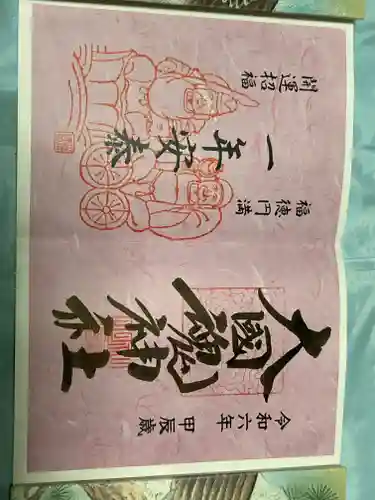 開運招福
一年安泰
福徳円満
大國魂神社
令和六年 甲辰歳